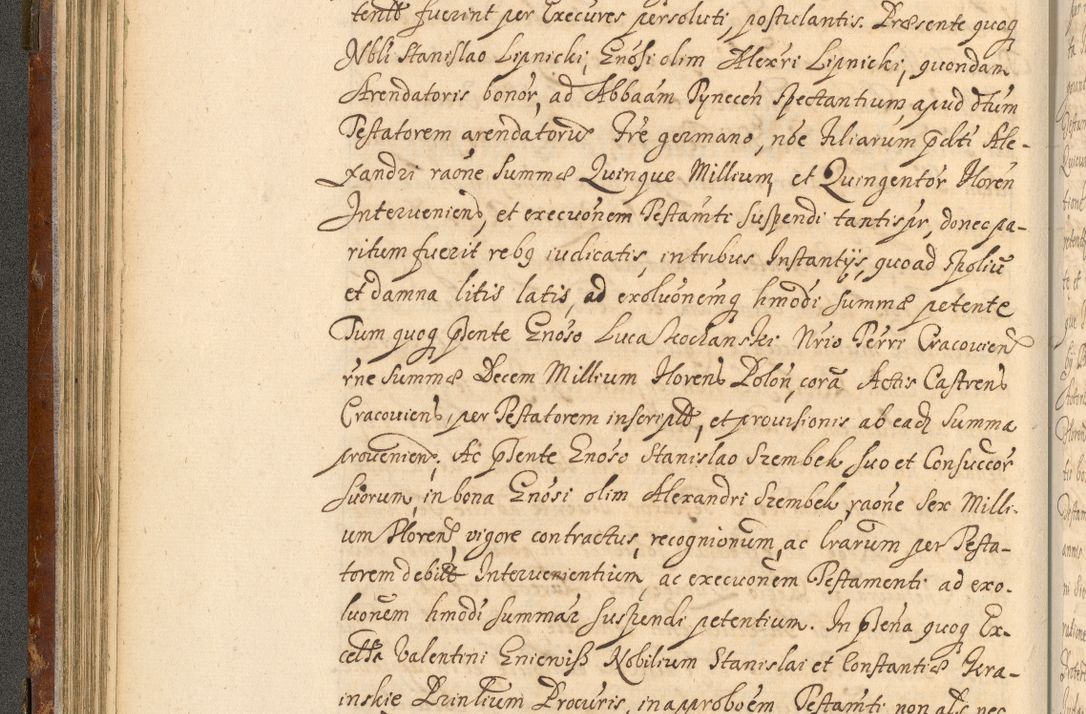 tentt fuerint per Execures persoluti, postulantis. Præsente quoq
Nbli Stanislao Lipnicki, Gnosi olim Alexri Lipnicki, quondam
Arendatoris bonor, ad Abbaam Tynecen spectantium, apud dtum
Testatorem arendatoru fre germano, nõe filiarum pdti Ale-
xandri raõne Summæ Quinque Millium, et Quingentor floren
Intervenien, et execuonem Testamti Suspendi tantispr, donec pa-
ritum fuerit rebg iudicatis, in tribus Instantijs, quoad spoliu
et damna litis latis, ad exoluonemq hmodi summæ petente
Tum quoq pñente Gnoso Luca Kochanski Nrio Terri Cracovien
rne Summæ Decem Millium floren Polon, corã Actis Castren
Cracovien, per Testatorem inscriptt, et provisionis ab eadq summa
provenien. Ac pñente Gnoso Stanislao Szembek suo et Consuccor
suorum, in bona Gnosi olim Alexandri Szembek, raõne Sex Milli-
um floren, vigore contractus, recognionum, ac lrarum per Testa-
torem debitt Intervenientium, ac execuonem Testamenti ad exo-
luonem hmodi summar suspendi petentium. In pñena quoq Ex-
cellis Valentini Gniewiss Nobilium Stanislai et Constantiæ
inskie Prinlium Procuris, in approboem Testamti non als nec